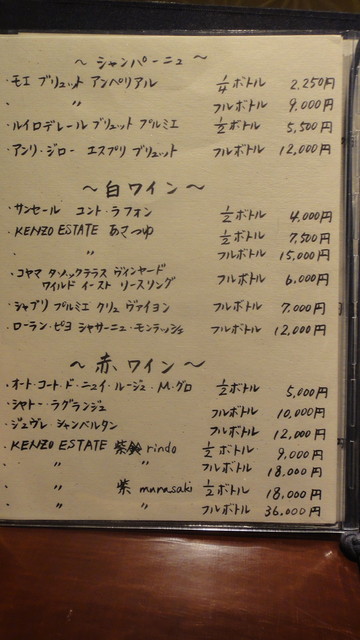 ～ シャンパーニュ ～
・モエ ブリュット アンペリアル 1/4 ボトル 2.250円
・ 〃 フルボトル 9,000円
・ルイロデレール ブリュット プルミエ 1/2 ボトル 5,500円
・アンリ・ジロー エスプリ ブリュット フルボトル 12,000円
～ 白 ワイン ～
・サンセール コント・ラフォン 1/2 ボトル 4,000円
・KENZO ESTATE あさつゆ 1/2 ボトル 7,500円
・ 〃 フルボトル 15,000円
・コヤマ タソックテラス ヴィンヤード
ワイルド イースト リースリング フルボトル 6,000円
・シャブリ プルミエ クリュ ヴァイヨン フルボトル 7,000円
・ローラン・ピヨ シャサーニュ・モンラッシェ フルボトル 12,000円
～ 赤 ワイン ～
・オート・コート・ド・ニュイ・ルージュ・M・グロ 1/2 ボトル 5,000円
・シャトー・ラグランジュ フルボトル 10,000円
・ジュヴレ シャンベルタン フルボトル 12,000円
・KENZO ESTATE 紫鈴 rindo 1/2 ボトル 9,000円
・ 〃 〃 フルボトル 18,000円
・ 〃 紫 murasaki 1/2 ボトル 18,000円
・ 〃 〃 フルボトル 36,000円